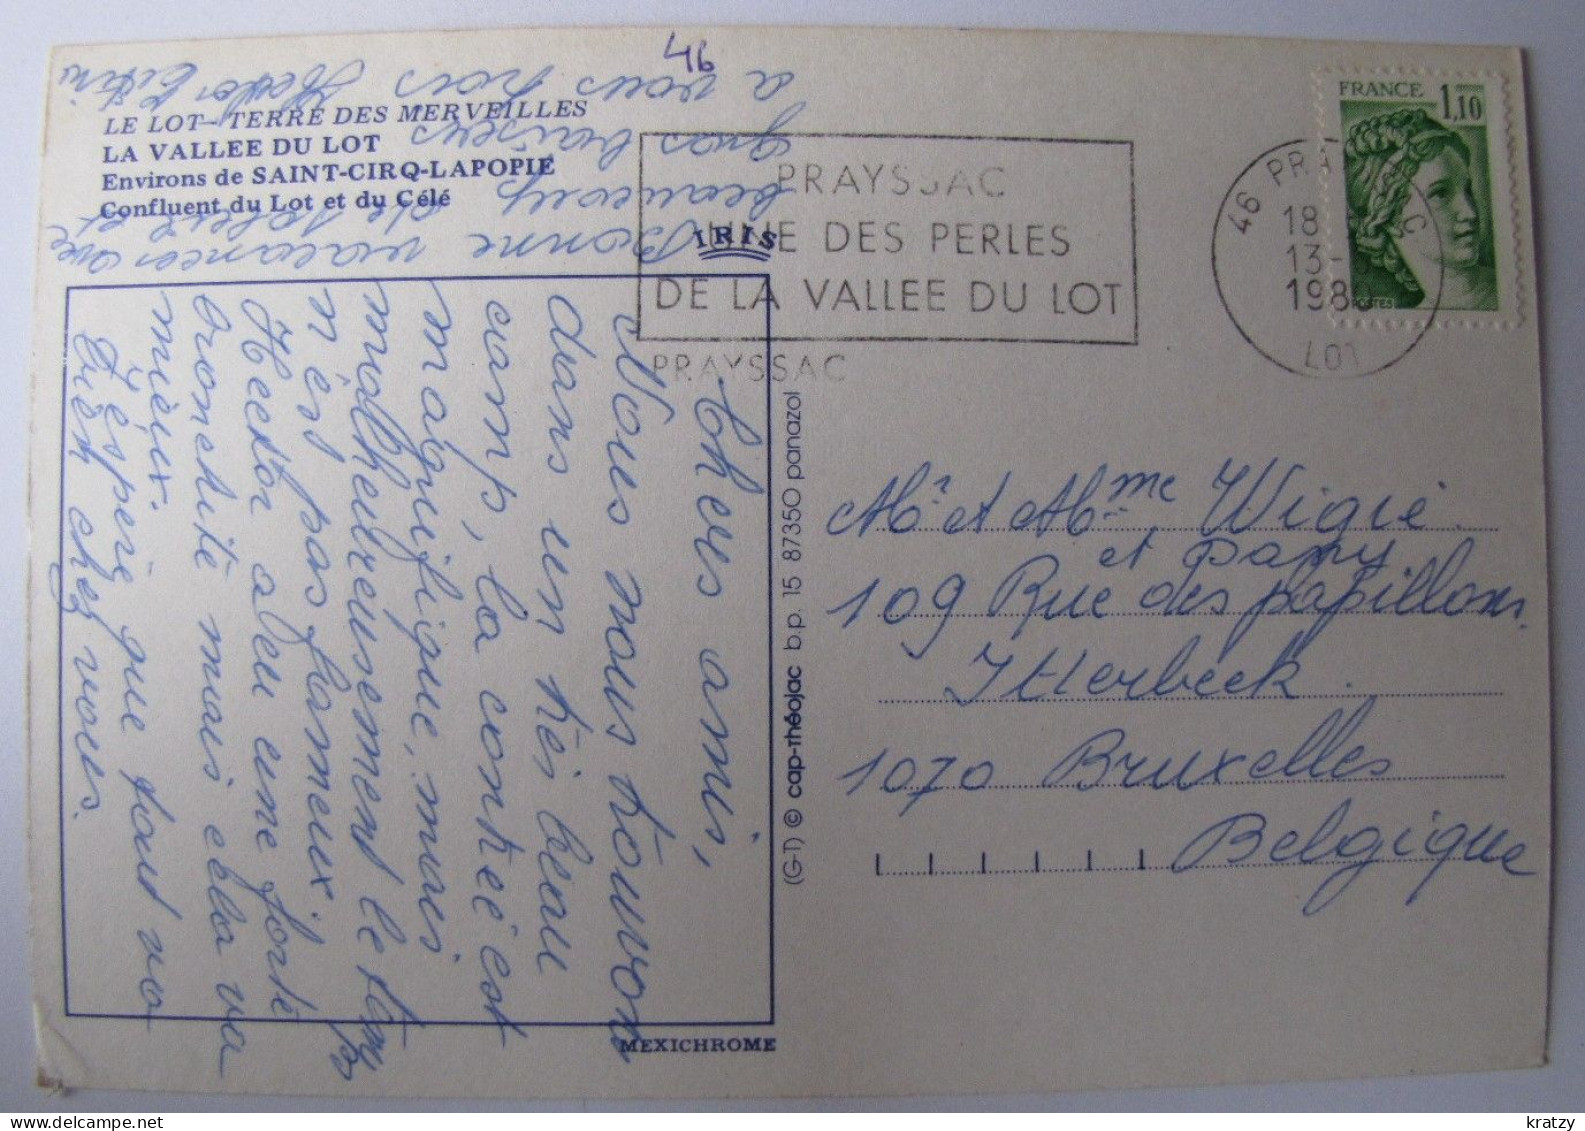 46
LE LOT - TERRE DES MERVEILLES
LA VALLEE DU LOT
Environs de SAINT-CIRQ-LAPOPIE
Confluent du Lot et du Célé
IRIS
Chers amis,
Nous nous trouvons
dans un très beau
camp, la contrée est
magnifique, mais
malheureusement le temps
n'est pas fameux.
Hector a eu une forte
bronchite mais cela va
mieux.
J'espère que tout va
bien chez vous.
Bonne vacances avec
beaucoup de soleil et
gros baisers
à vous trois Hector
MEXICHROME
(G-T) © cap-théojac b.p. 15 87350 panazol
PRAYSSAC
UNE DES PERLES
DE LA VALLEE DU LOT
PRAYSSAC
46 PRAYSSAC
18
13-
198
LOT
FRANCE 1,10
POSTES
Mr et Mme Wigié
et papy
109 Rue des papillons
Itterbeek.
1070 Bruxelles
Belgique
kratzy